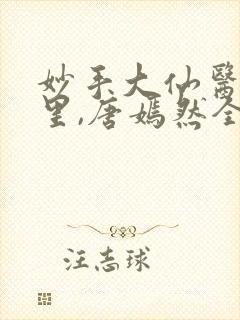 妙手大仙醫
里,唐嫣然全
汪志球